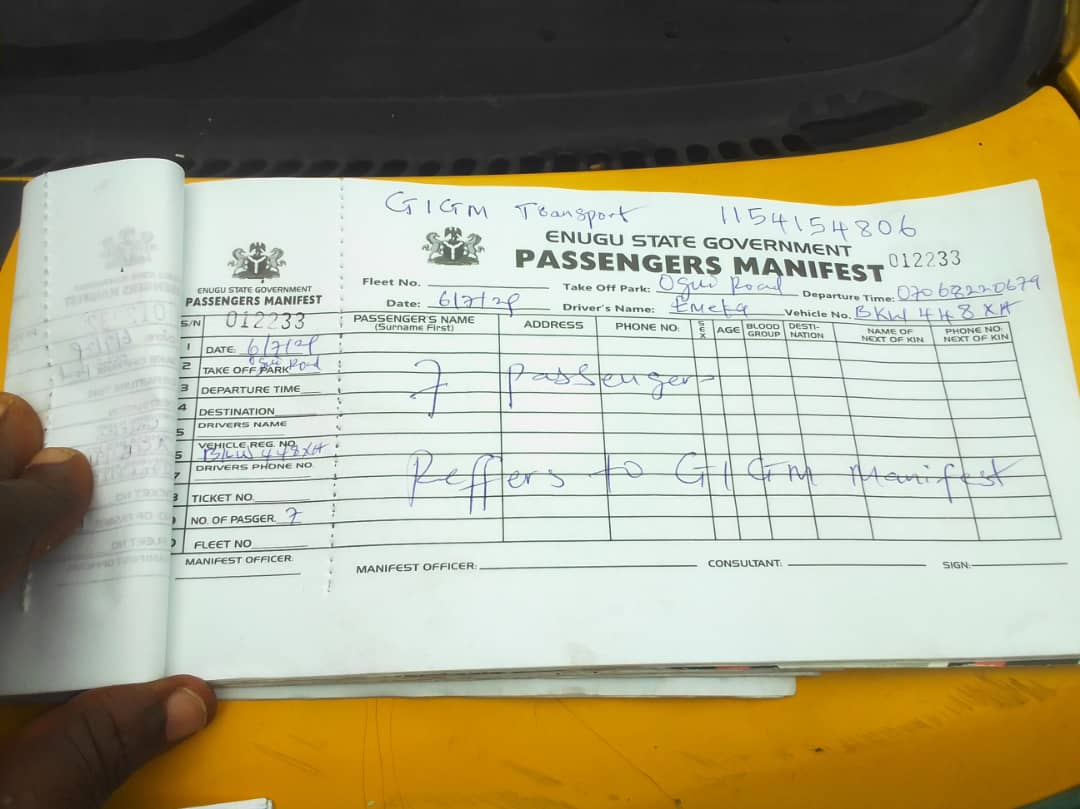 GIGM Transport 1154154806
ENUGU STATE GOVERNMENT
PASSENGERS MANIFEST 012233
Fleet No. Take Off Park: Ogui Road Departure Time: 07068220679
Date: 6/7/2 Driver's Name: Emeka Vehicle No. BKW 448 XA
PASSENGER'S NAME (Surname First) ADDRESS PHONE NO: SEX AGE BLOOD GROUP DESTI-NATION NAME OF NEXT OF KIN PHONE NO: NEXT OF KIN
7 Passengers
Reffers to GIGM Manifest
MANIFEST OFFICER: CONSULTANT: SIGN:
ENUGU STATE GOVERNMENT
PASSENGERS MANIFEST
S/N 012233
1 DATE: 6/7/2
2 TAKE OFF PARK Ogui Road
3 DEPARTURE TIME
4 DESTINATION
5 DRIVERS NAME
6 VEHICLE REG. NO. BKW 448 XA
7 DRIVERS PHONE NO.
8 TICKET NO.
NO. OF PASGER. 7
FLEET NO
MANIFEST OFFICER: